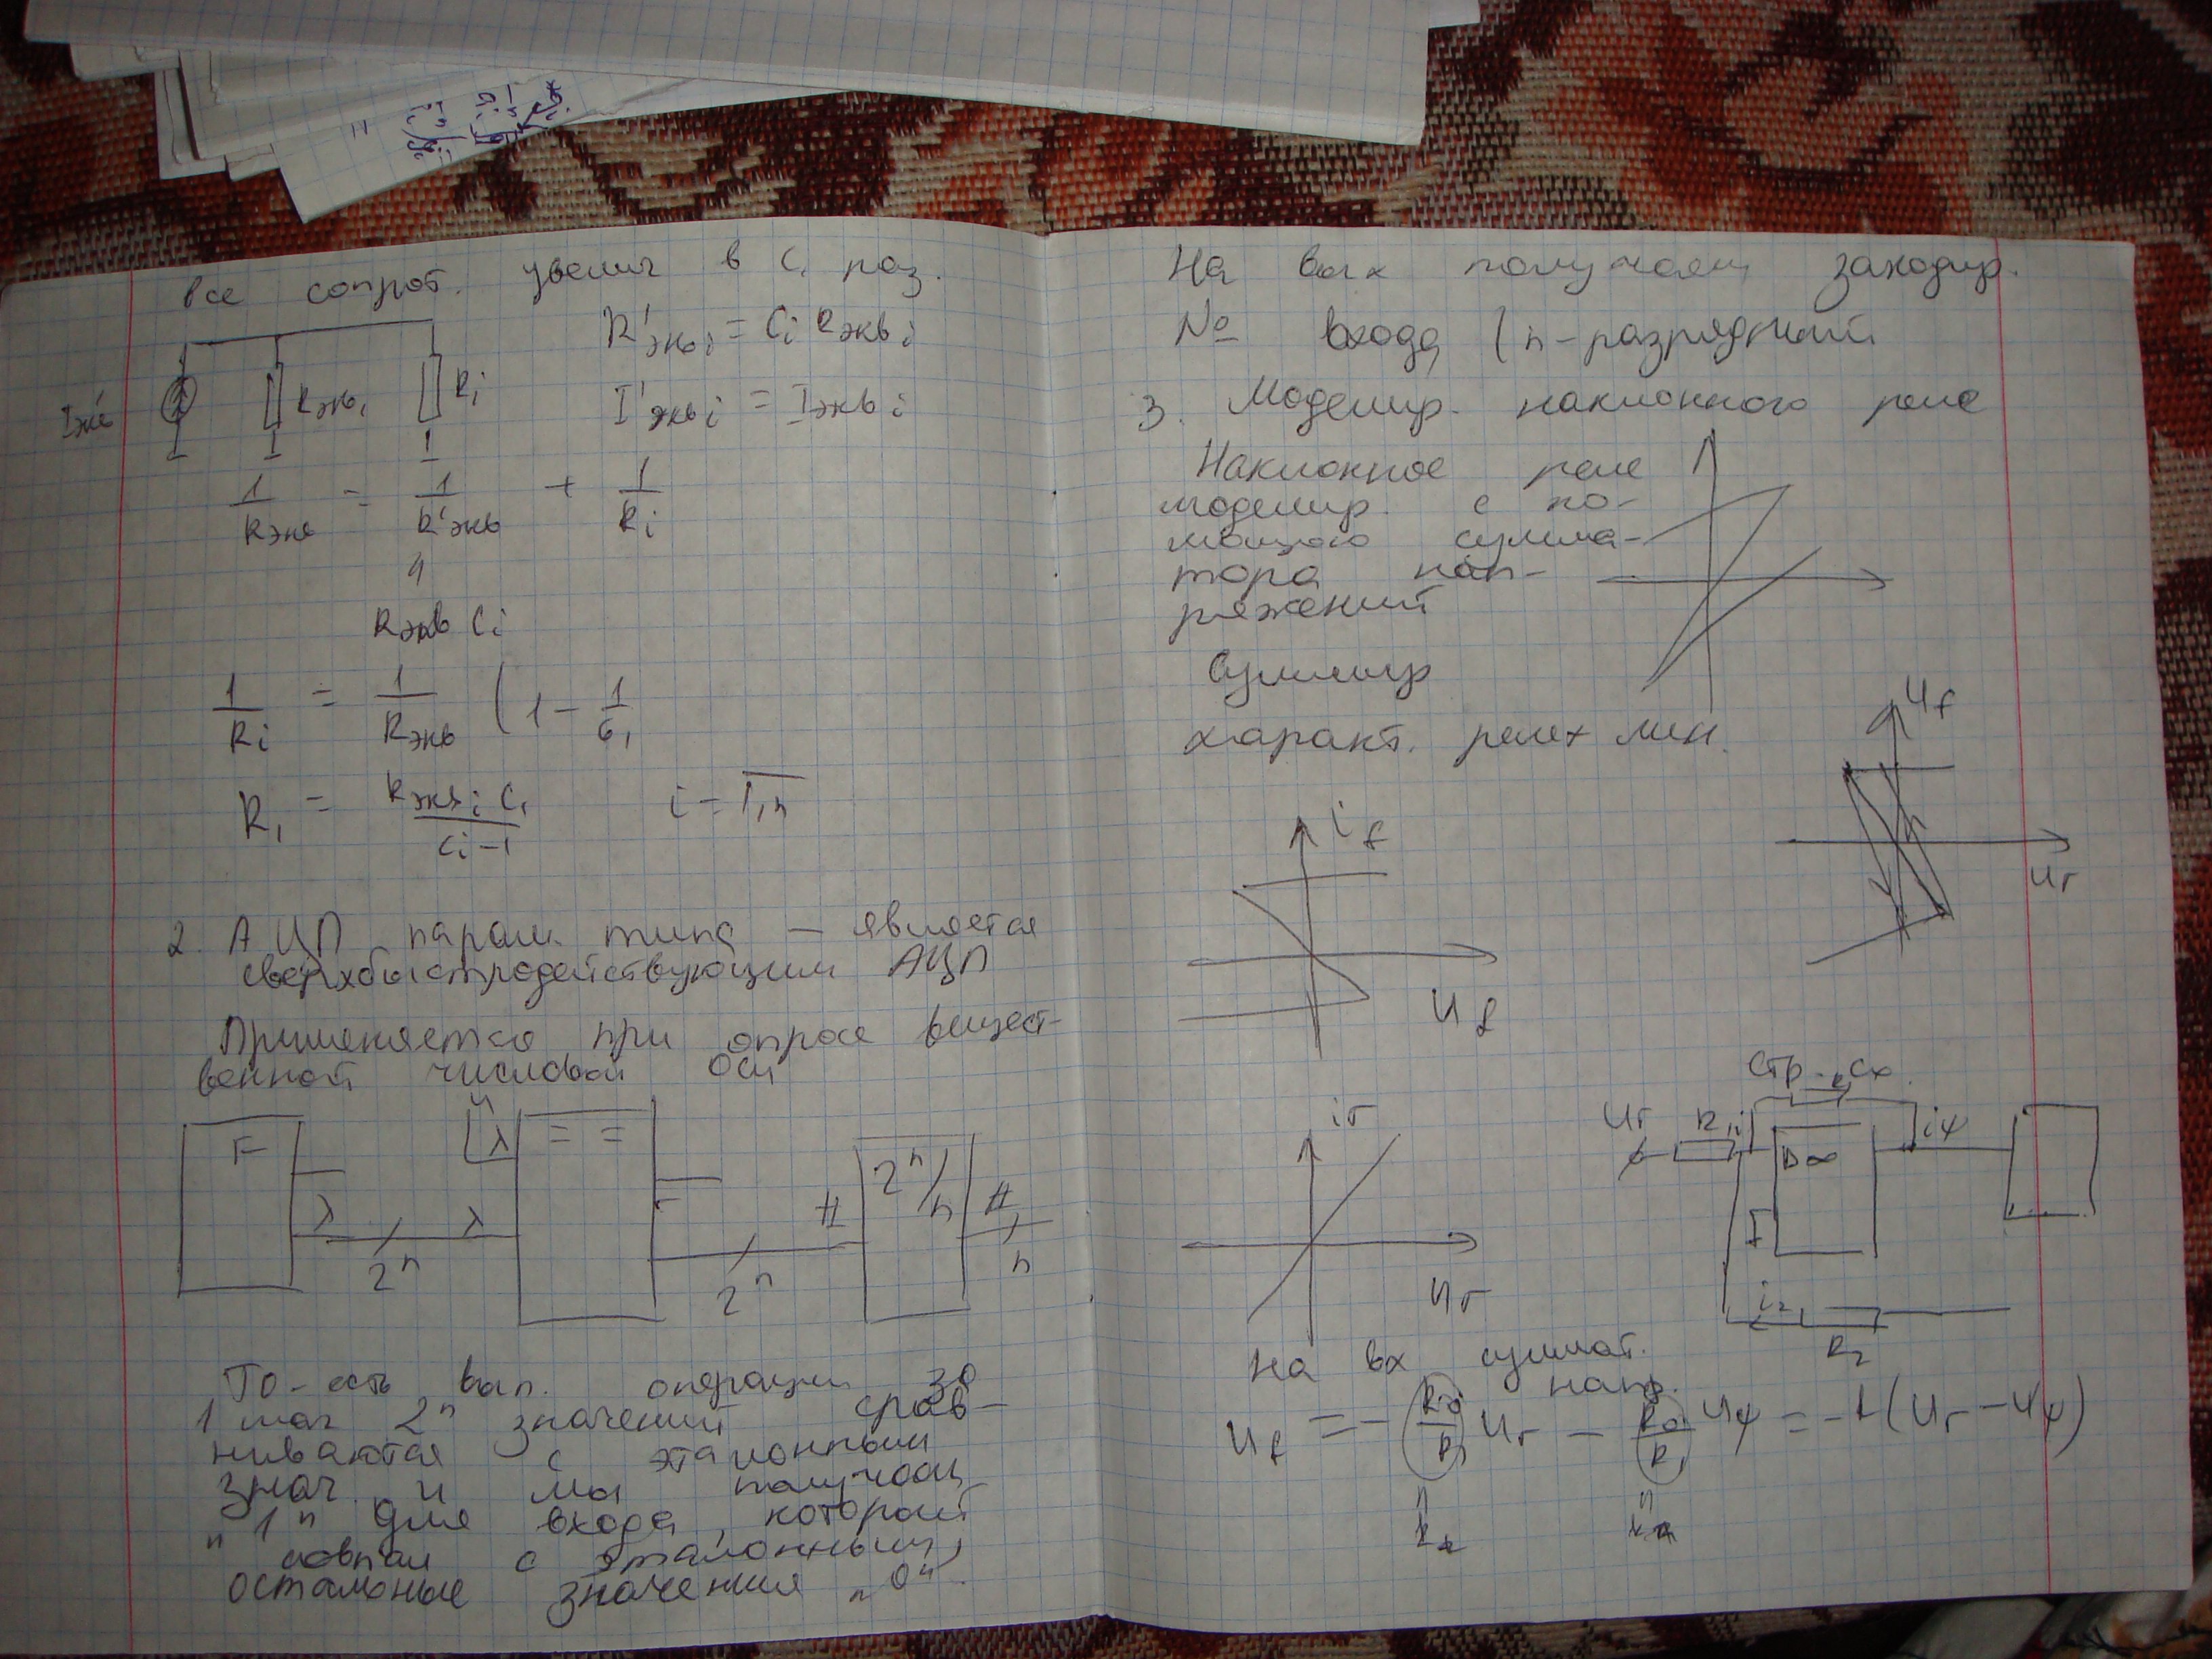 все сопрот. увелич в Ci раз.
R'экв i = Ci Rэкв i
I'экв i = Iэкв i
Rэкв i
Ri
1/Rэкв = 1/R'экв + 1/Ri
Rэкв Ci
1/Ri = 1/Rэкв (1 - 1/Ci
Ri = Rэкв i Ci / Ci - 1
i = 1,n
2. АЦП парал. типа – является
сверхбыстродействующим АЦП
Применяется при опросе вещест-
венной числовой оси
F
λ
2ⁿ
λ
λ
= =
2ⁿ
#
2ⁿ/n
#
n
То-есть вып. операции за
1 шаг 2ⁿ значений срав-
ниваются с эталонным
знач. и мы получаем
"1" для входа, который
совпал с эталонным,
остальные значения "0".
На вых получаем закодир.
№ входа (n-разрядный
3. Моделир. наклонного реле
Наклонное реле
моделир. с по-
мощью сумма-
тора нап-
ряжений
Суммир
характ. реле + лин.
Uf
Uг
if
Uf
Стр. Сх.
Uг
R1
D∞
iг
Uг
R2
На вх суммат.
напр.
Uf = - R0/R1 Uг - R0/R1 Uψ = -k(Uг - Uψ)